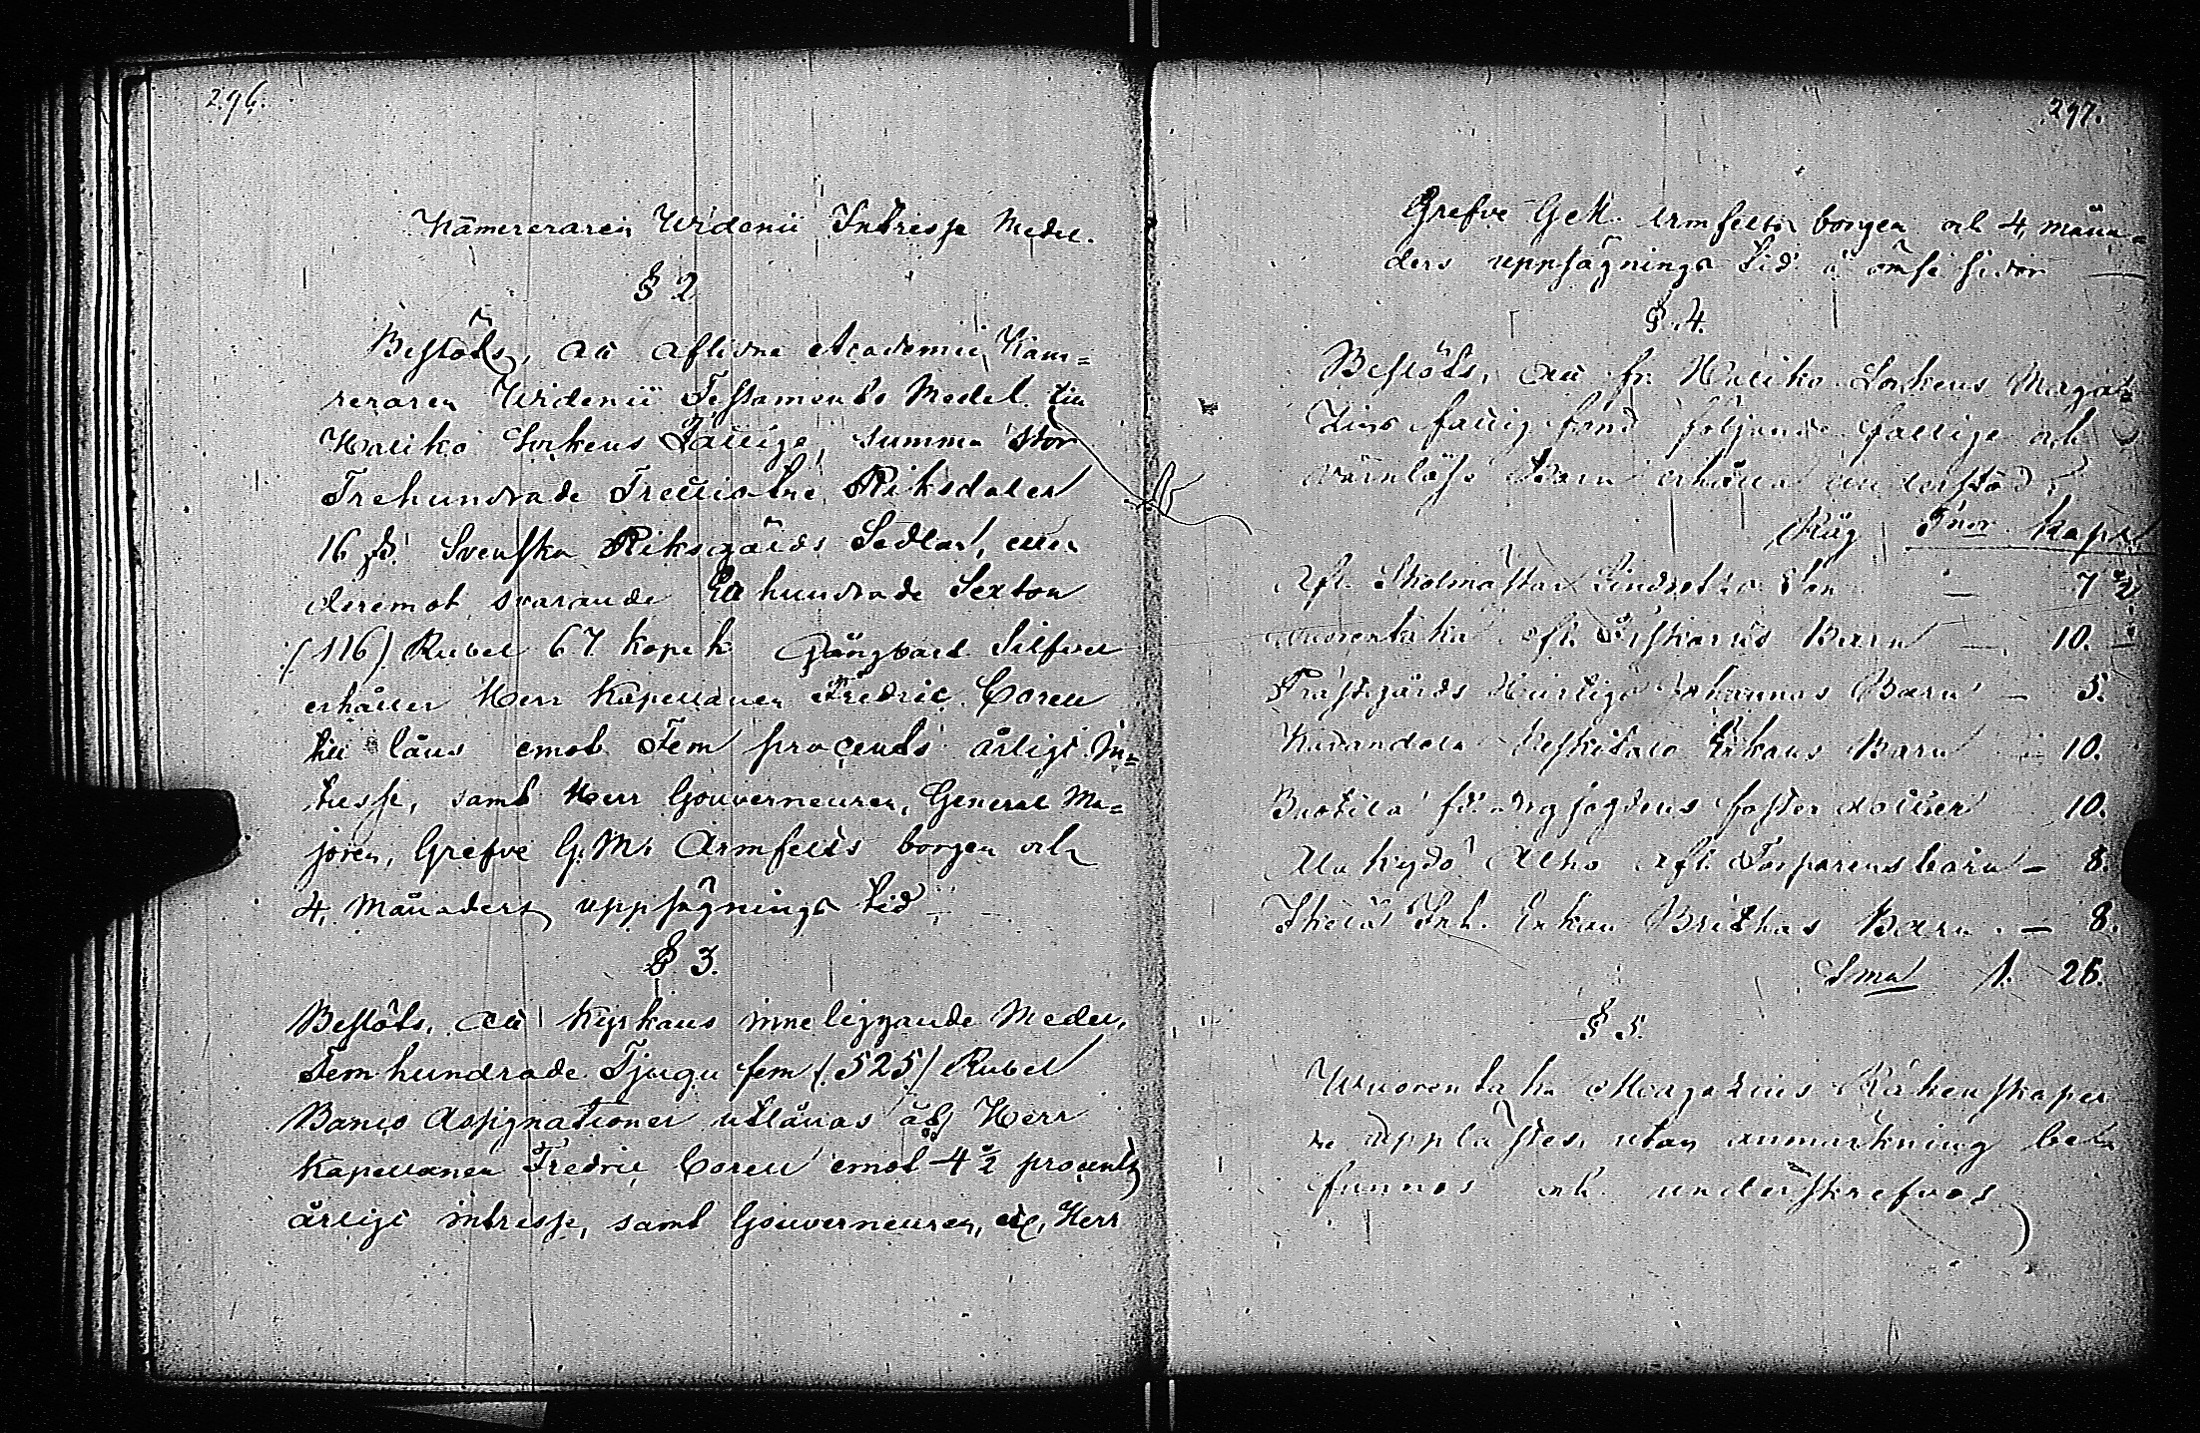 296.
Kämereraren Widenii Intresse Medel.
§ 2
Beslöts, att aflidne Academii Käm=
reraren Widenii Testaments Medel till
Halliko Sockens Fattiga, summa stor
Trehundrade Trettiotre Riksdaler
16 ß. Svenska Riksgälds Sedlar, eller
deremot svarande Ett hundrade Sexton
(116) Rubel 67 kopek Gångbart Silfver
erhåller Herr Kapellanen Fredric Corell
till låns emot Fem procents årligt In=
tresse, samt Herr Gouverneuren, General Ma=
joren, Grefve G. M. Armfelts borgen och
4 Månaders uppsägnings tid
§ 3.
Beslöts, att Kyrkans inneliggande Medel,
Fem hundrade Tjugu fem (525) Rubel
Banco Assignationer utlånas åt Herr
Kapellanen Fredric Corell emot 4 ½ procents
årligt intresse, samt Gouverneuren, etc, Herr
297.
Grefve G. M. Armfelts borgen och 4 måna=
ders uppsägnings tid å ömse sidor
§. 4.
Beslöts, att fr. Halliko Sockens Maga=
Zins fattig fond följande fattige och
värnlöse Barn erhålla understöd:
Råg Tnor Kapr
Afl. Skolmästar Lindroths Son — 7 ½
Wuorentaka afl. Barn — 10.
Prästgårds Johannas Barn — 5.
Erkans Barn 10.
foster dotter 10.
Ala Kydö Alho Afl. Torparens barn — 8.
Inh. Erkan Brithas Barn — 8.
Sma 1. 26.
§ 5.
Wuorentaka Magazins Räkenskaper
ne upplästes, utan anmärkning be=
funnos och underskrefvos